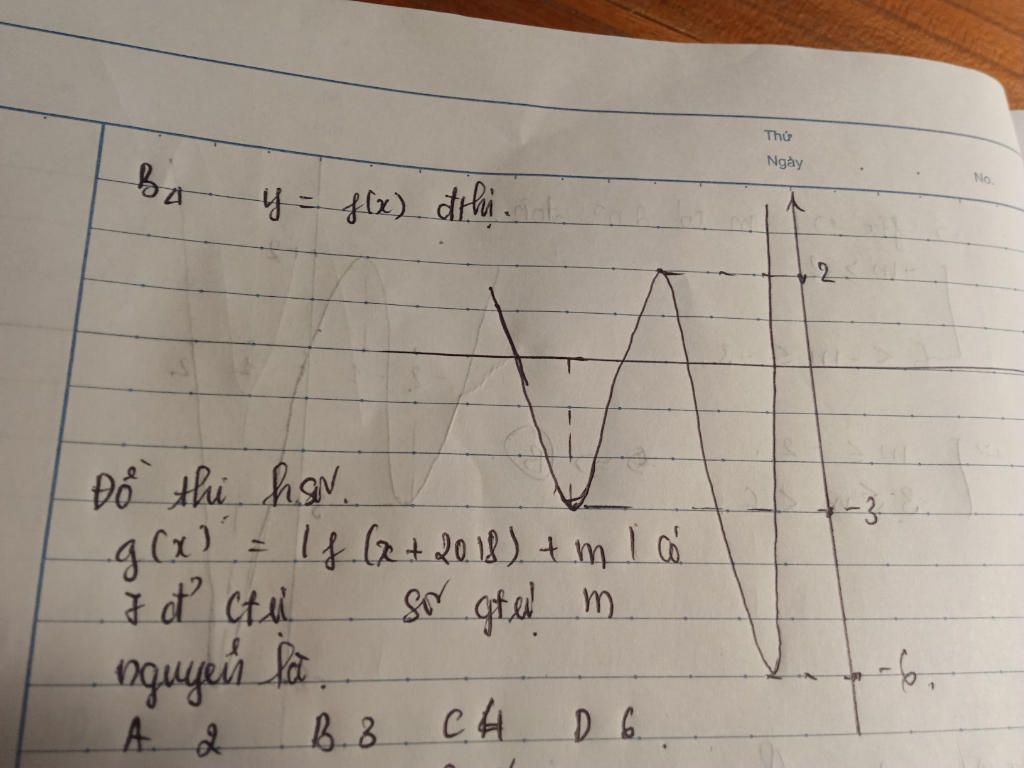 Thứ
Ngày
No.
B4 y = f(x) đthị.
2
Đồ thị hsố.
-3
g(x) = |f(x+2018) + m| có
7 đ' ctrị số gtrị m
nguyên là.
-6.
A. 2 B. 3 C 4 D 6